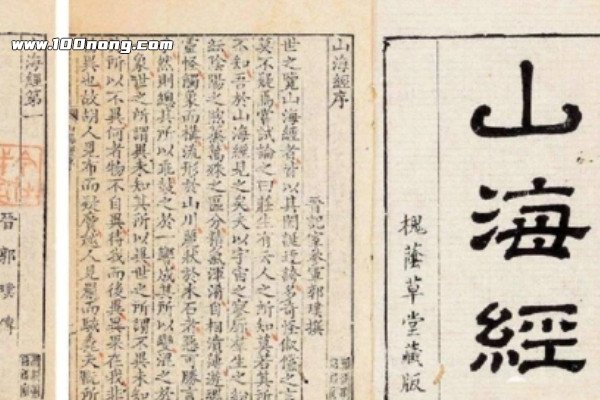 www.100nong.com
山海經
槐蔭草堂藏版
山海經序
晉記室參軍郭璞撰
世之覽山海經者皆以其閎誕迂誇多奇怪俶儻之言
莫不疑焉嘗試論之曰莊生有云人之所知莫若其所
不知吾於山海經見之矣夫以宇宙之寥廓群生之紛
紜陰陽之煦蒸萬殊之區分精氣渾淆自相濆薄遊魂
靈怪觸象而構流形於山川麗狀於木石者惡可勝言
然則總其所以乖鼓之於一響成其所以變混之於
象世之所謂異未知其所以異世之所謂不異未知
所以不異何者物不自異待我而後異異果在我非
異也故胡人見布而疑黂越人見罽而駭毳夫翫所
山海經第一
晉郭璞傳